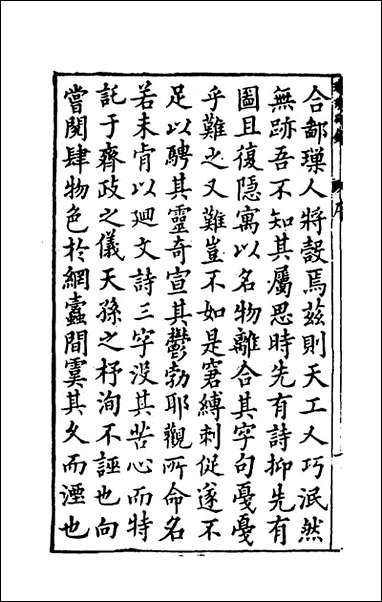 合鄱璅人將㲉焉茲則天工人巧泯然
無跡吾不知其屬思時先有詩抑先有
圖且復隱寓以名物離合其字句戞戞
乎難之又難豈不如是窘縛刺促遂不
足以騁其靈奇宣其鬱勃耶觀所命名
若未肯以廻文詩三字没其苦心而特
託于齊政之儀天孫之杼洵不誣也向
嘗閱肆物色於網蠹間寞其文而湮也